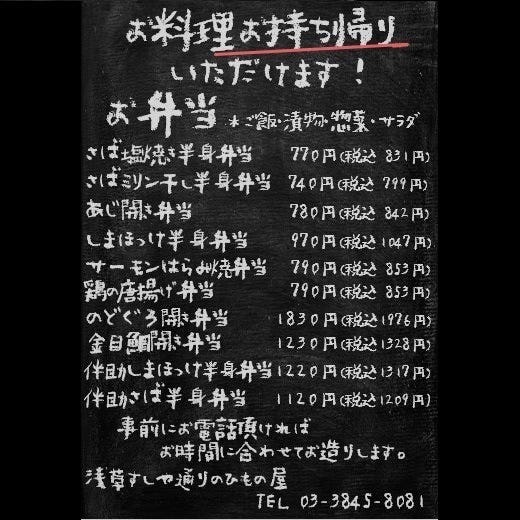 お料理お持ち帰り
いただけます!
お弁当 *ご飯・漬物・惣菜・サラダ
さば塩焼き半身弁当 770円(税込 831円)
さばミリン干し半身弁当 740円(税込 799円)
あじ開き弁当 780円(税込 842円)
しまほっけ半身弁当 970円(税込 1047円)
サーモンはらみ焼弁当 790円(税込 853円)
鶏の唐揚げ弁当 790円(税込 853円)
のどぐろ開き弁当 1830円(税込 1976円)
金目鯛開き弁当 1230円(税込 1328円)
伴助しまほっけ半身弁当 1220円(税込 1317円)
伴助さば半身弁当 1120円(税込 1209円)
事前にお電話頂ければ
お時間に合わせてお造りします。
浅草すしや通りのひもの屋
TEL 03-3845-8081